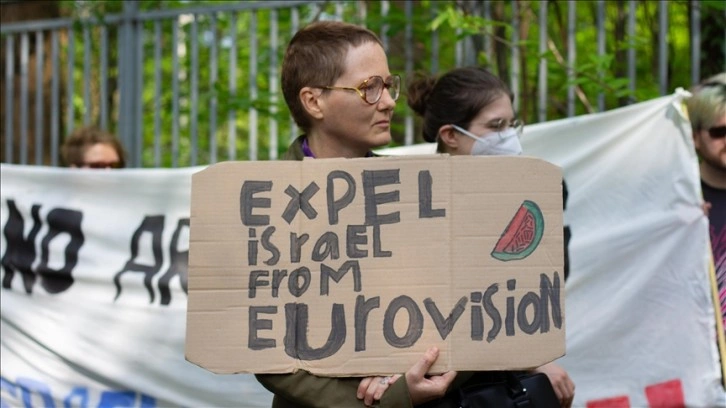 EXPEL
israEL
FROM
EUrovision
NO AR